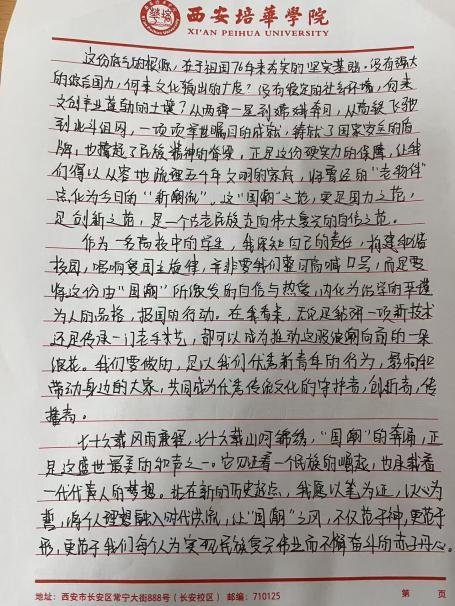 西安培華學院
XI'AN PEIHUA UNIVERSITY
这份底气的根源，在于祖国76年来夯实的坚实基础。没有强大
的综合国力，何来文化输出的广度？没有稳定的社会环境，何来
文创产业蓬勃的土壤？从两弹一星到嫦娥奔月，从高铁飞驰
到北斗组网，一项项举世瞩目的成就，铸就了国家安全的盾
牌，也撑起了民族精神的脊梁，正是这份硬实力的保障，让我
们得以从容地梳理五千年文明的家府，将曾经的“老物件”
点化为今日的“新潮流”。这“国潮”之花，更是国力之花，
是创新之花，是一个古老民族走向伟大复兴的自信之花。
作为一名高校中的学生，我深知自己的责任，构建和谐
校园，唱响爱国主旋律，并非要我们整日高喊口号，而是要
将这份由“国潮”所激发的自信与热爱，内化为治学的平道
为人的品格，报国的行动。在我看来，无论是钻研一项新技术
还是传承一门老手艺，都可以成为推动这股浪潮向前的一朵
浪花。我们要做的，是以我们优秀新青年的行为，影响和
带动身边的大家，共同成为优秀传统文化的守护者，创新者，传
播者。
七十六载风雨兼程，七十六载山河锦绣，“国潮”的奔涌，正
是这盛世最美的和声之一。它见证着一个民族的崛起，也承载着
一代代青人的梦想。站在新的历史起点，我愿以笔为证，以心为
誓，将个人理想融入时代洪流，让“国潮”之风，不仅范于神，更范于
形，更范于我们每个人为实现民族复兴伟业而不懈奋斗的赤子丹心。
地址：西安市长安区常宁大街888号（长安校区） 邮编：710125 第 页